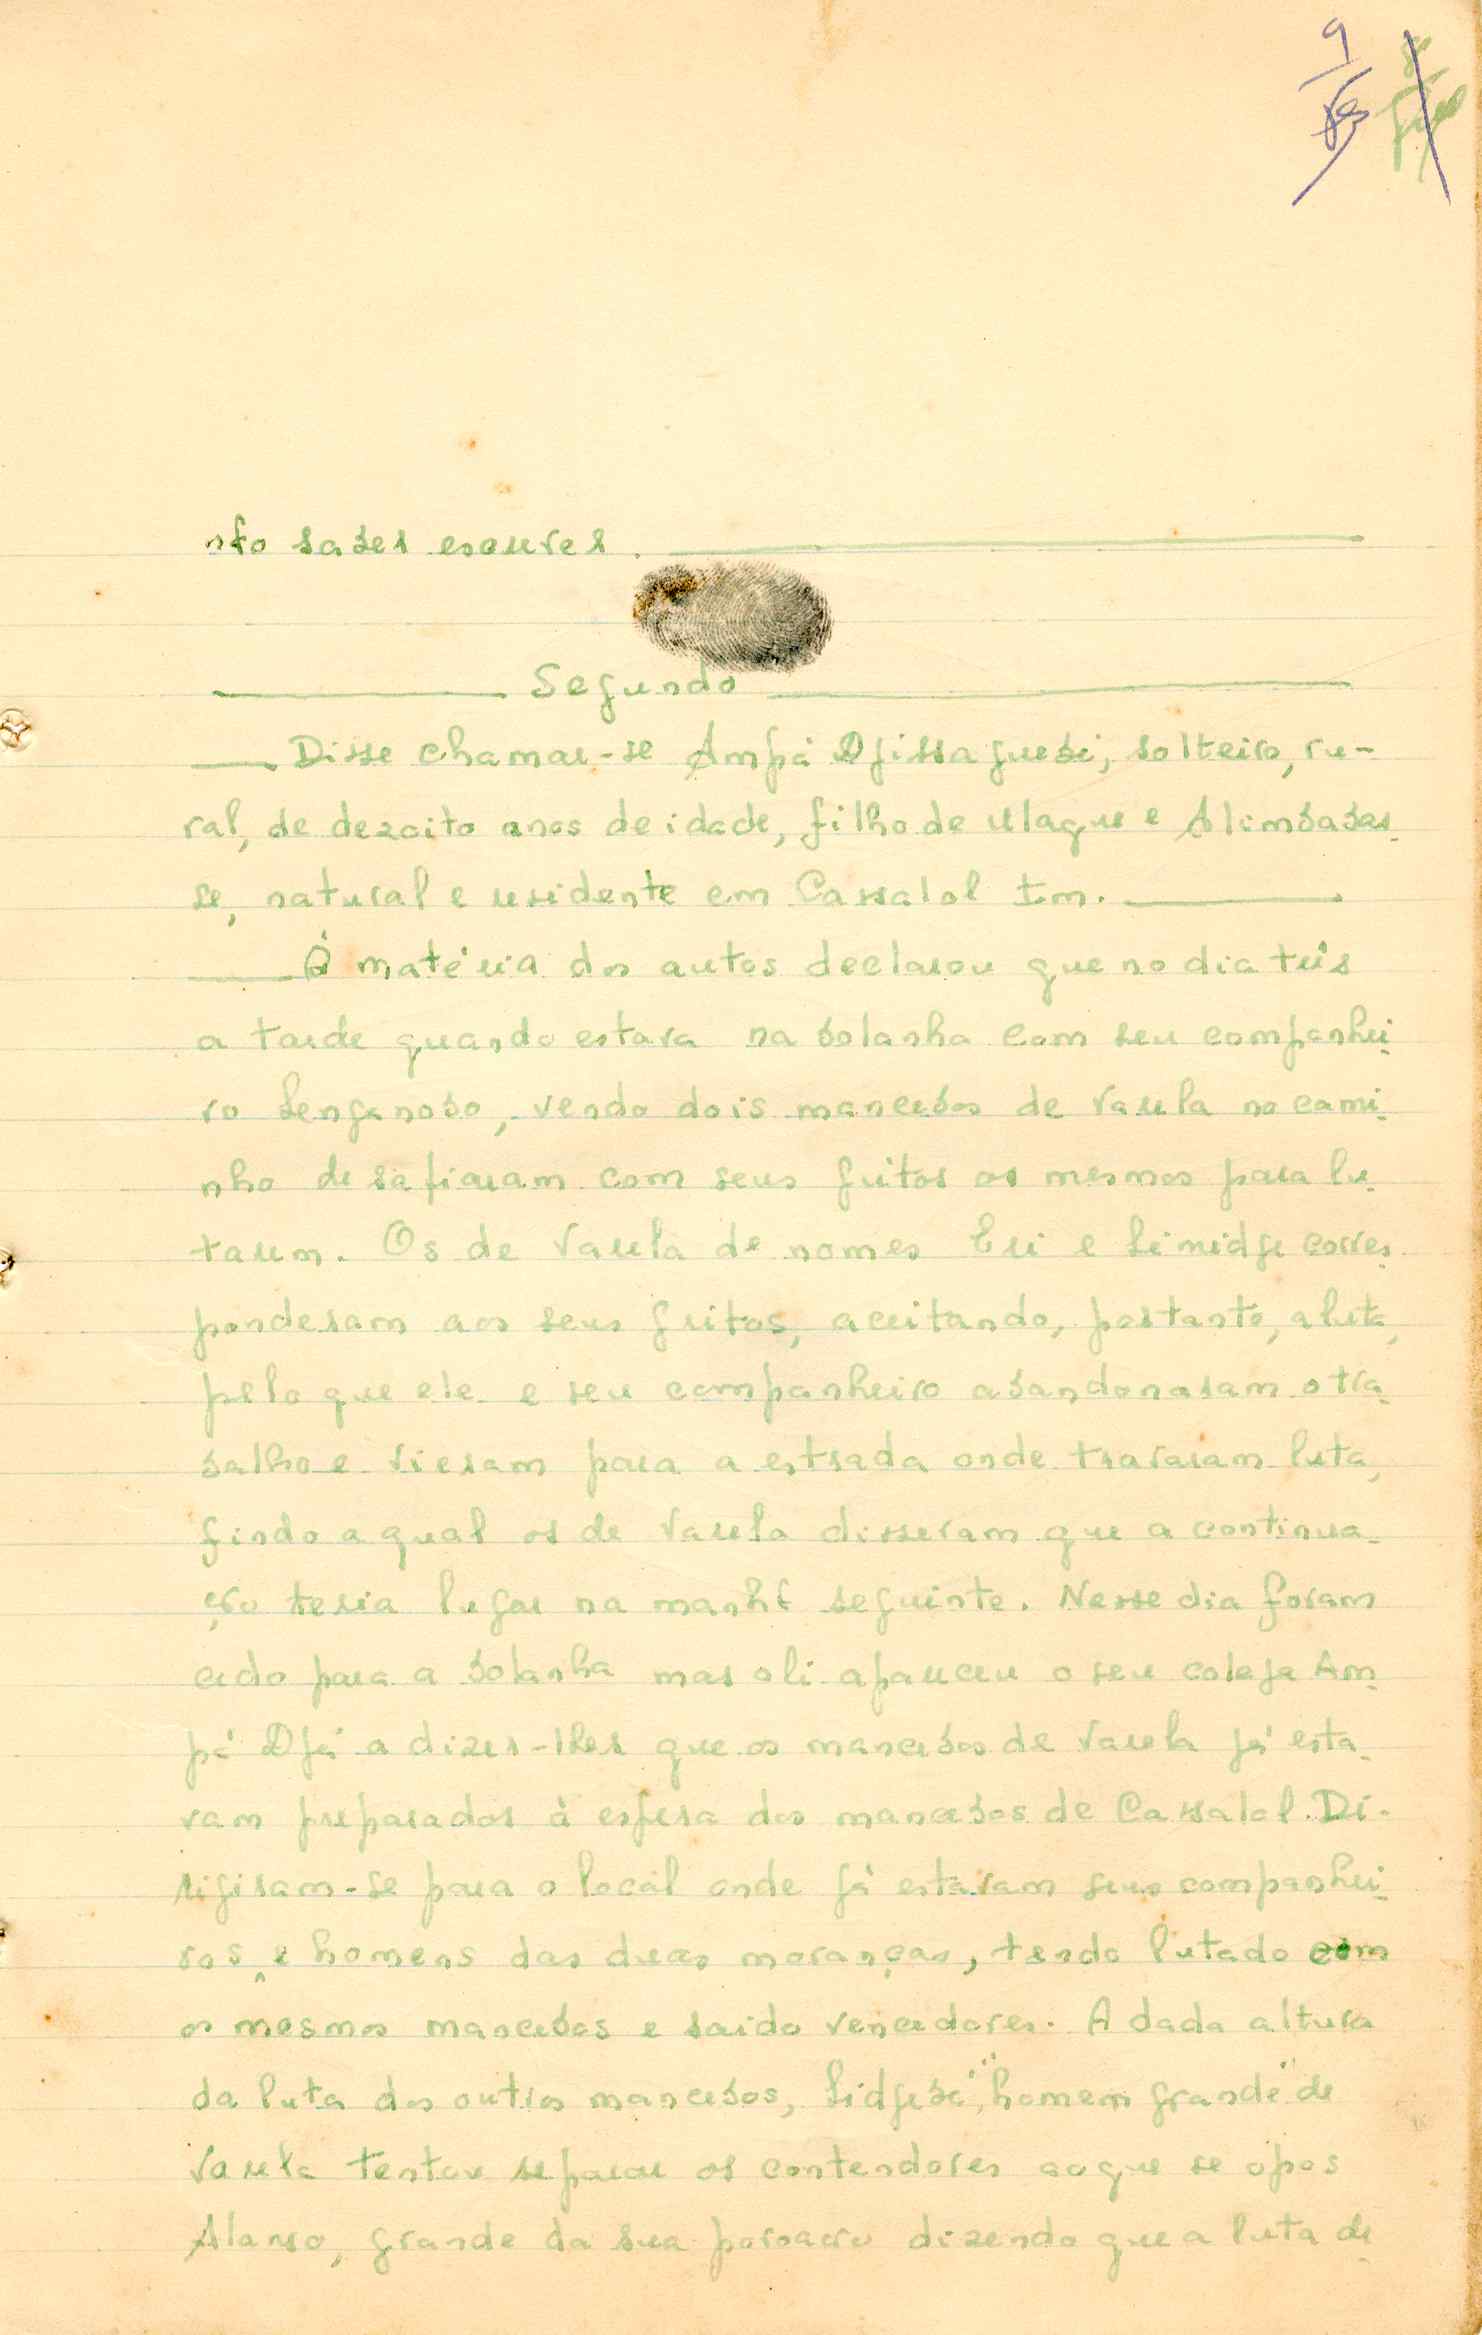 9
não saber escrever.
Segundo
Disse chamar-se Ampá Djissaguebé, solteiro, ru-
ral, de dezoito anos de idade, filho de Ulaque e Alimbabas-
se, natural e residente em Cassalol Tim.
À matéria dos autos declarou que no dia três
a tarde quando estava na bolanha com seu companhei-
ro Senganobo, vendo dois mancebos de Varela no cami-
nho desafiaram com seus gritos os mesmos para lu-
tarem. Os de Varela de nomes Eri e Simidje corres-
ponderam aos seus gritos, aceitando, portanto, a luta,
pelo que ele e seu companheiro abandonaram o tra-
balho e vieram para a estrada onde travaram luta,
findo a qual os de Varela disseram que a continua-
ção teria lugar na manhã seguinte. Nesse dia foram
cedo para a bolanha mas ali apareceu o seu colega Am-
pá Djá a dizer-lhes que os mancebos de Varela já esta-
vam preparados à espera dos mancebos de Cassalol. Di-
rigiram-se para o local onde já estavam seus companhei-
ros e homens das duas moranças, tendo lutado com
os mesmos mancebos e saido vencedores. A dada altura
da luta dos outros mancebos, Sidjebé, "homem grande" de
Varela tentou separar os contendores ao que se opos
Alanso, grande da sua poroação dizendo que a luta de-